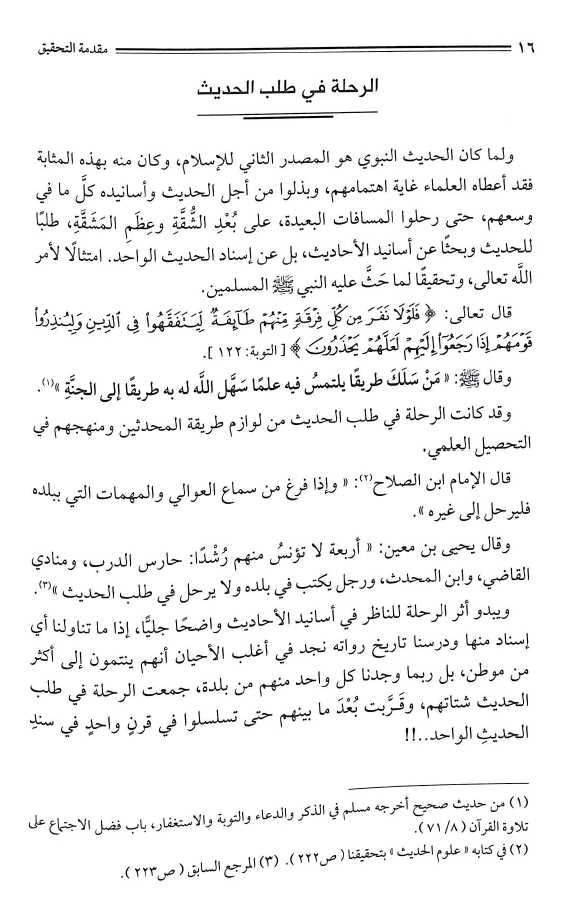 ١٦ مقدمة التحقيق
الرحلة في طلب الحديث
ولما كان الحديث النبوي هو المصدر الثاني للإسلام، وكان منه بهذه المثابة
فقد أعطاه العلماء غاية اهتمامهم، وبذلوا من أجل الحديث وأسانيده كلَّ ما في
وسعهم، حتى رحلوا المسافات البعيدة، على بُعْدِ الشُّقَّةِ وعِظَمِ المَشَقَّةِ، طلبًا
للحديث وبحثًا عن أسانيد الأحاديث، بل عن إسناد الحديث الواحد. امتثالًا لأمر
اللَّه تعالى، وتحقيقًا لما حَثَّ عليه النبي ﷺ المسلمين.
قال تعالى: ﴿ فَلَوْلَا نَفَرَ مِن كُلِّ فِرْقَةٍ مِّنْهُمْ طَآئِفَةٌ لِّيَتَفَقَّهُوا۟ فِى ٱلدِّينِ وَلِيُنذِرُوا۟
قَوْمَهُمْ إِذَا رَجَعُوٓا۟ إِلَيْهِمْ لَعَلَّهُمْ يَحْذَرُونَ ﴾ [ التوبة: ١٢٢ ].
وقال ﷺ: « مَنْ سَلَكَ طريقًا يلتمسُ فيه علمًا سَهَّل اللَّه له به طريقًا إلى الجنَّةِ »(١).
وقد كانت الرحلة في طلب الحديث من لوازم طريقة المحدثين ومنهجهم في
التحصيل العلمي.
قال الإمام ابن الصلاح(٢): « وإذا فرغ من سماع العوالي والمهمات التي ببلده
فليرحل إلى غيره ».
وقال يحيى بن معين: « أربعة لا تؤنسُ منهم رُشْدًا: حارس الدرب، ومنادي
القاضي، وابن المحدث، ورجل يكتب في بلده ولا يرحل في طلب الحديث »(٣).
ويبدو أثر الرحلة للناظر في أسانيد الأحاديث واضحًا جليًّا، إذا ما تناولنا أي
إسناد منها ودرسنا تاريخ رواته نجد في أغلب الأحيان أنهم ينتمون إلى أكثر
من موطن، بل ربما وجدنا كل واحد منهم من بلدة، جمعت الرحلة في طلب
الحديث شتاتهم، وقَرَّبت بُعْدَ ما بينهم حتى تسلسلوا في قرنٍ واحدٍ في سندِ
الحديثِ الواحد..!!
(١) من حديث صحيح أخرجه مسلم في الذكر والدعاء والتوبة والاستغفار، باب فضل الاجتماع على
تلاوة القرآن ( ٨/ ٧١ ).
(٢) في كتابه « علوم الحديث » بتحقيقنا ( ص٢٢٢ ). (٣) المرجع السابق ( ص٢٢٣ ).